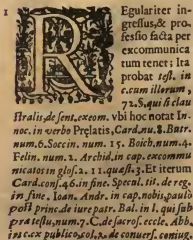 1 REgulariter in-
greſſus, & pro-
feſſio facta per
excommunica
tum tenet; Ita
probat teſt. in
c.cum illorum,
72.S. qui ſi clau
ſtralis, de ſent. excom. vbi hoc notat In-
noc. in verbo Prelatis, Card. nu. 8. Butr.
num. 6. Soccin. num. 15. Boich. num. 4.
Felin. num. 2. Archid. in cap. excommu
nicatos in gloſ. 2. 11. quæſt. 3. Et iterum
Card. conſ. 46. in fine. Specul. tit. de reg.
in fine. Ioan. Andr. in cap. nobis, paulò
poſt princ. de iure patr. Bal. in l. qui ſub
prætextu, num. 7. C. de ſacroſ. eccle. Abb.
in c. ex publico, col. 2. de conuerſ. coniug.